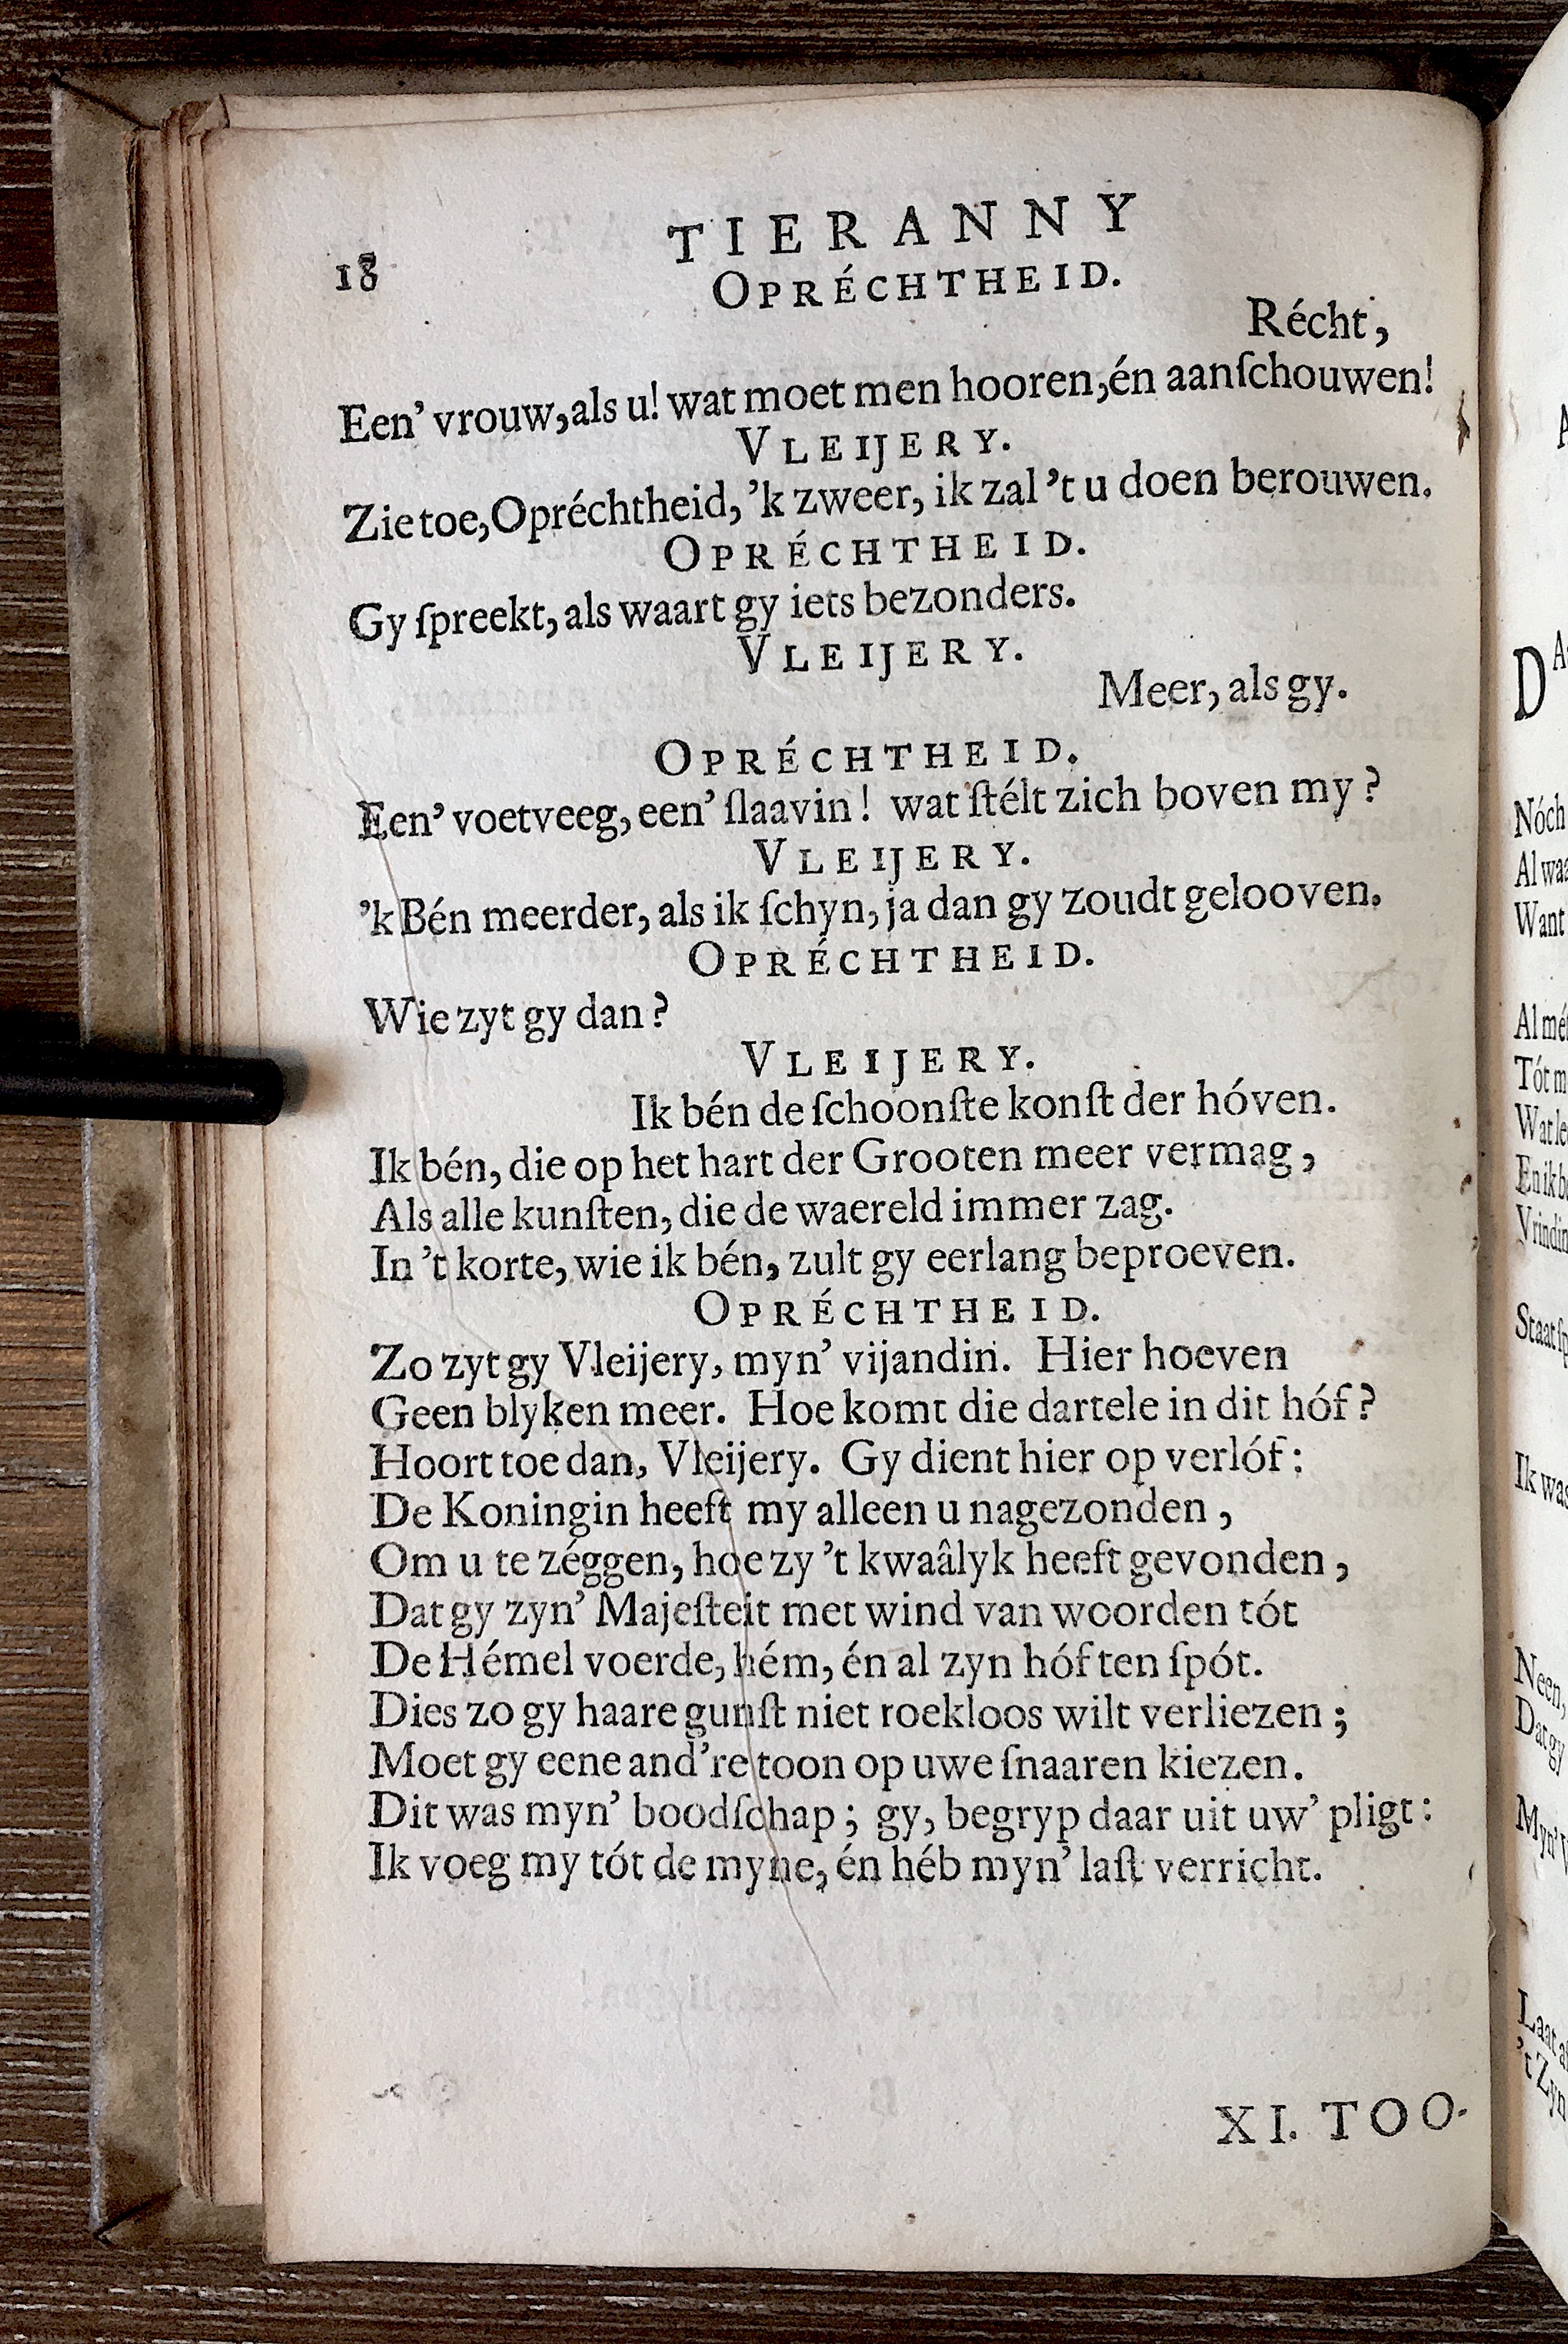 18
TIERANNY
OPRÉCHTHEID.
Récht,
Een' vrouw, als u! wat moet men hooren, én aanſchouwen!
VLEIJERY.
Zie toe, Opréchtheid, 'k zweer, ik zal 't u doen berouwen.
OPRÉCHTHEID.
Gy ſpreekt, als waart gy iets bezonders.
VLEIJERY.
Meer, als gy.
OPRÉCHTHEID.
Een' voetveeg, een' ſlaavin! wat ſtélt zich boven my?
VLEIJERY.
'k Bén meerder, als ik ſchyn, ja dan gy zoudt gelooven.
OPRÉCHTHEID.
Wie zyt gy dan?
VLEIJERY.
Ik bén de ſchoonſte konſt der hóven.
Ik bén, die op het hart der Grooten meer vermag,
Als alle kunſten, die de waereld immer zag.
In 't korte, wie ik bén, zult gy eerlang beproeven.
OPRÉCHTHEID.
Zo zyt gy Vleijery, myn' vijandin. Hier hoeven
Geen blyken meer. Hoe komt die dartele in dit hóf?
Hoort toe dan, Vleijery. Gy dient hier op verlóf:
De Koningin heeft my alleen u nagezonden,
Om u te zéggen, hoe zy 't kwaâlyk heeft gevonden,
Dat gy zyn' Majeſteit met wind van woorden tót
De Hémel voerde, hém, én al zyn hóf ten ſpót.
Dies zo gy haare gunſt niet roekloos wilt verliezen;
Moet gy eene and're toon op uwe ſnaaren kiezen.
Dit was myn' boodſchap; gy, begryp daar uit uw' pligt:
Ik voeg my tót de myne, én héb myn' laſt verricht.
XI. TOO-
D
Nóch
Want
Ik was
Neen,
Dat gy